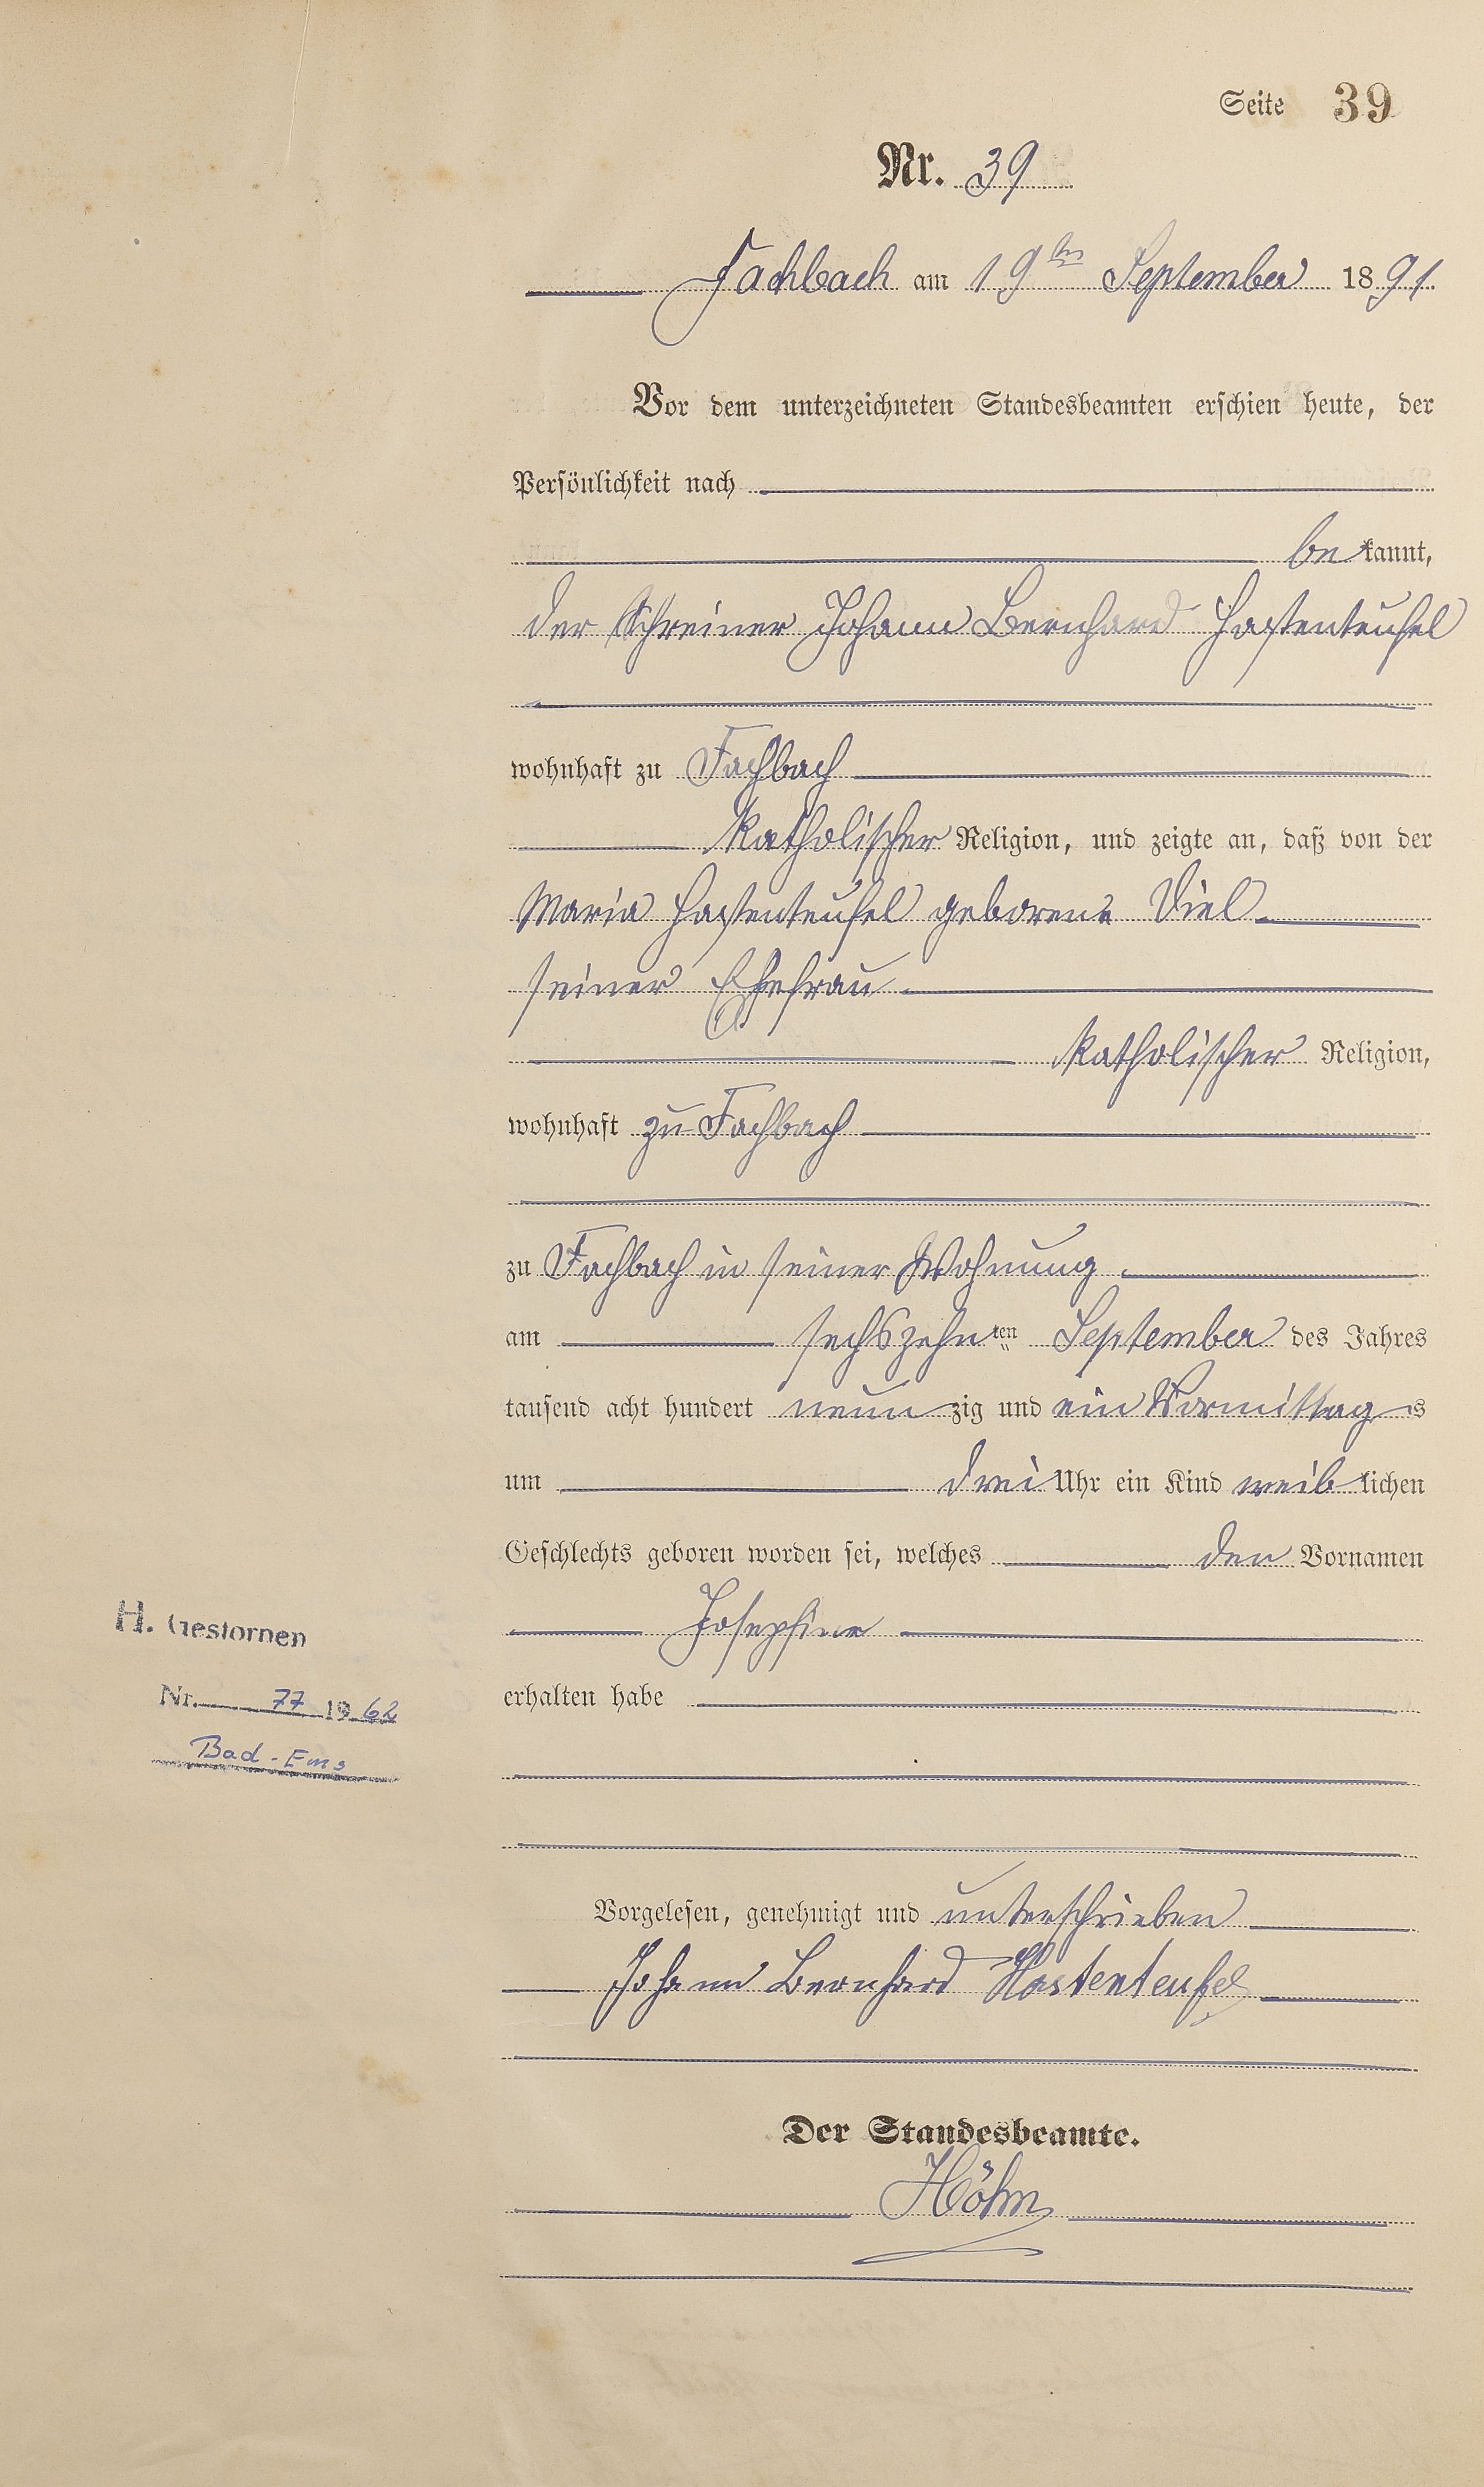 Seite 39
Nr. 39
Fachbach am 19ten September 1891
Vor dem unterzeichneten Standesbeamten erschien heute, der
Persönlichkeit nach
be kannt,
der Schreiner Johann Bernhard Hastenteufel
wohnhaft zu Fachbach
katholischer Religion, und zeigte an, daß von der
Maria Hastenteufel geborene Diel
seiner Ehefrau
katholischer Religion,
wohnhaft zu Fachbach
zu Fachbach in seiner Wohnung
am sechszehnten September des Jahres
tausend acht hundert neunzig und ein Vormittags
um drei Uhr ein Kind weiblichen
Geschlechts geboren worden sei, welches den Vornamen
Josephine
H. Gestorben
erhalten habe
Nr. 77 1962
Bad-Ems
Vorgelesen, genehmigt und unterschrieben
Johann Bernhard Hastenteufel
Der Standesbeamte.
Höhn